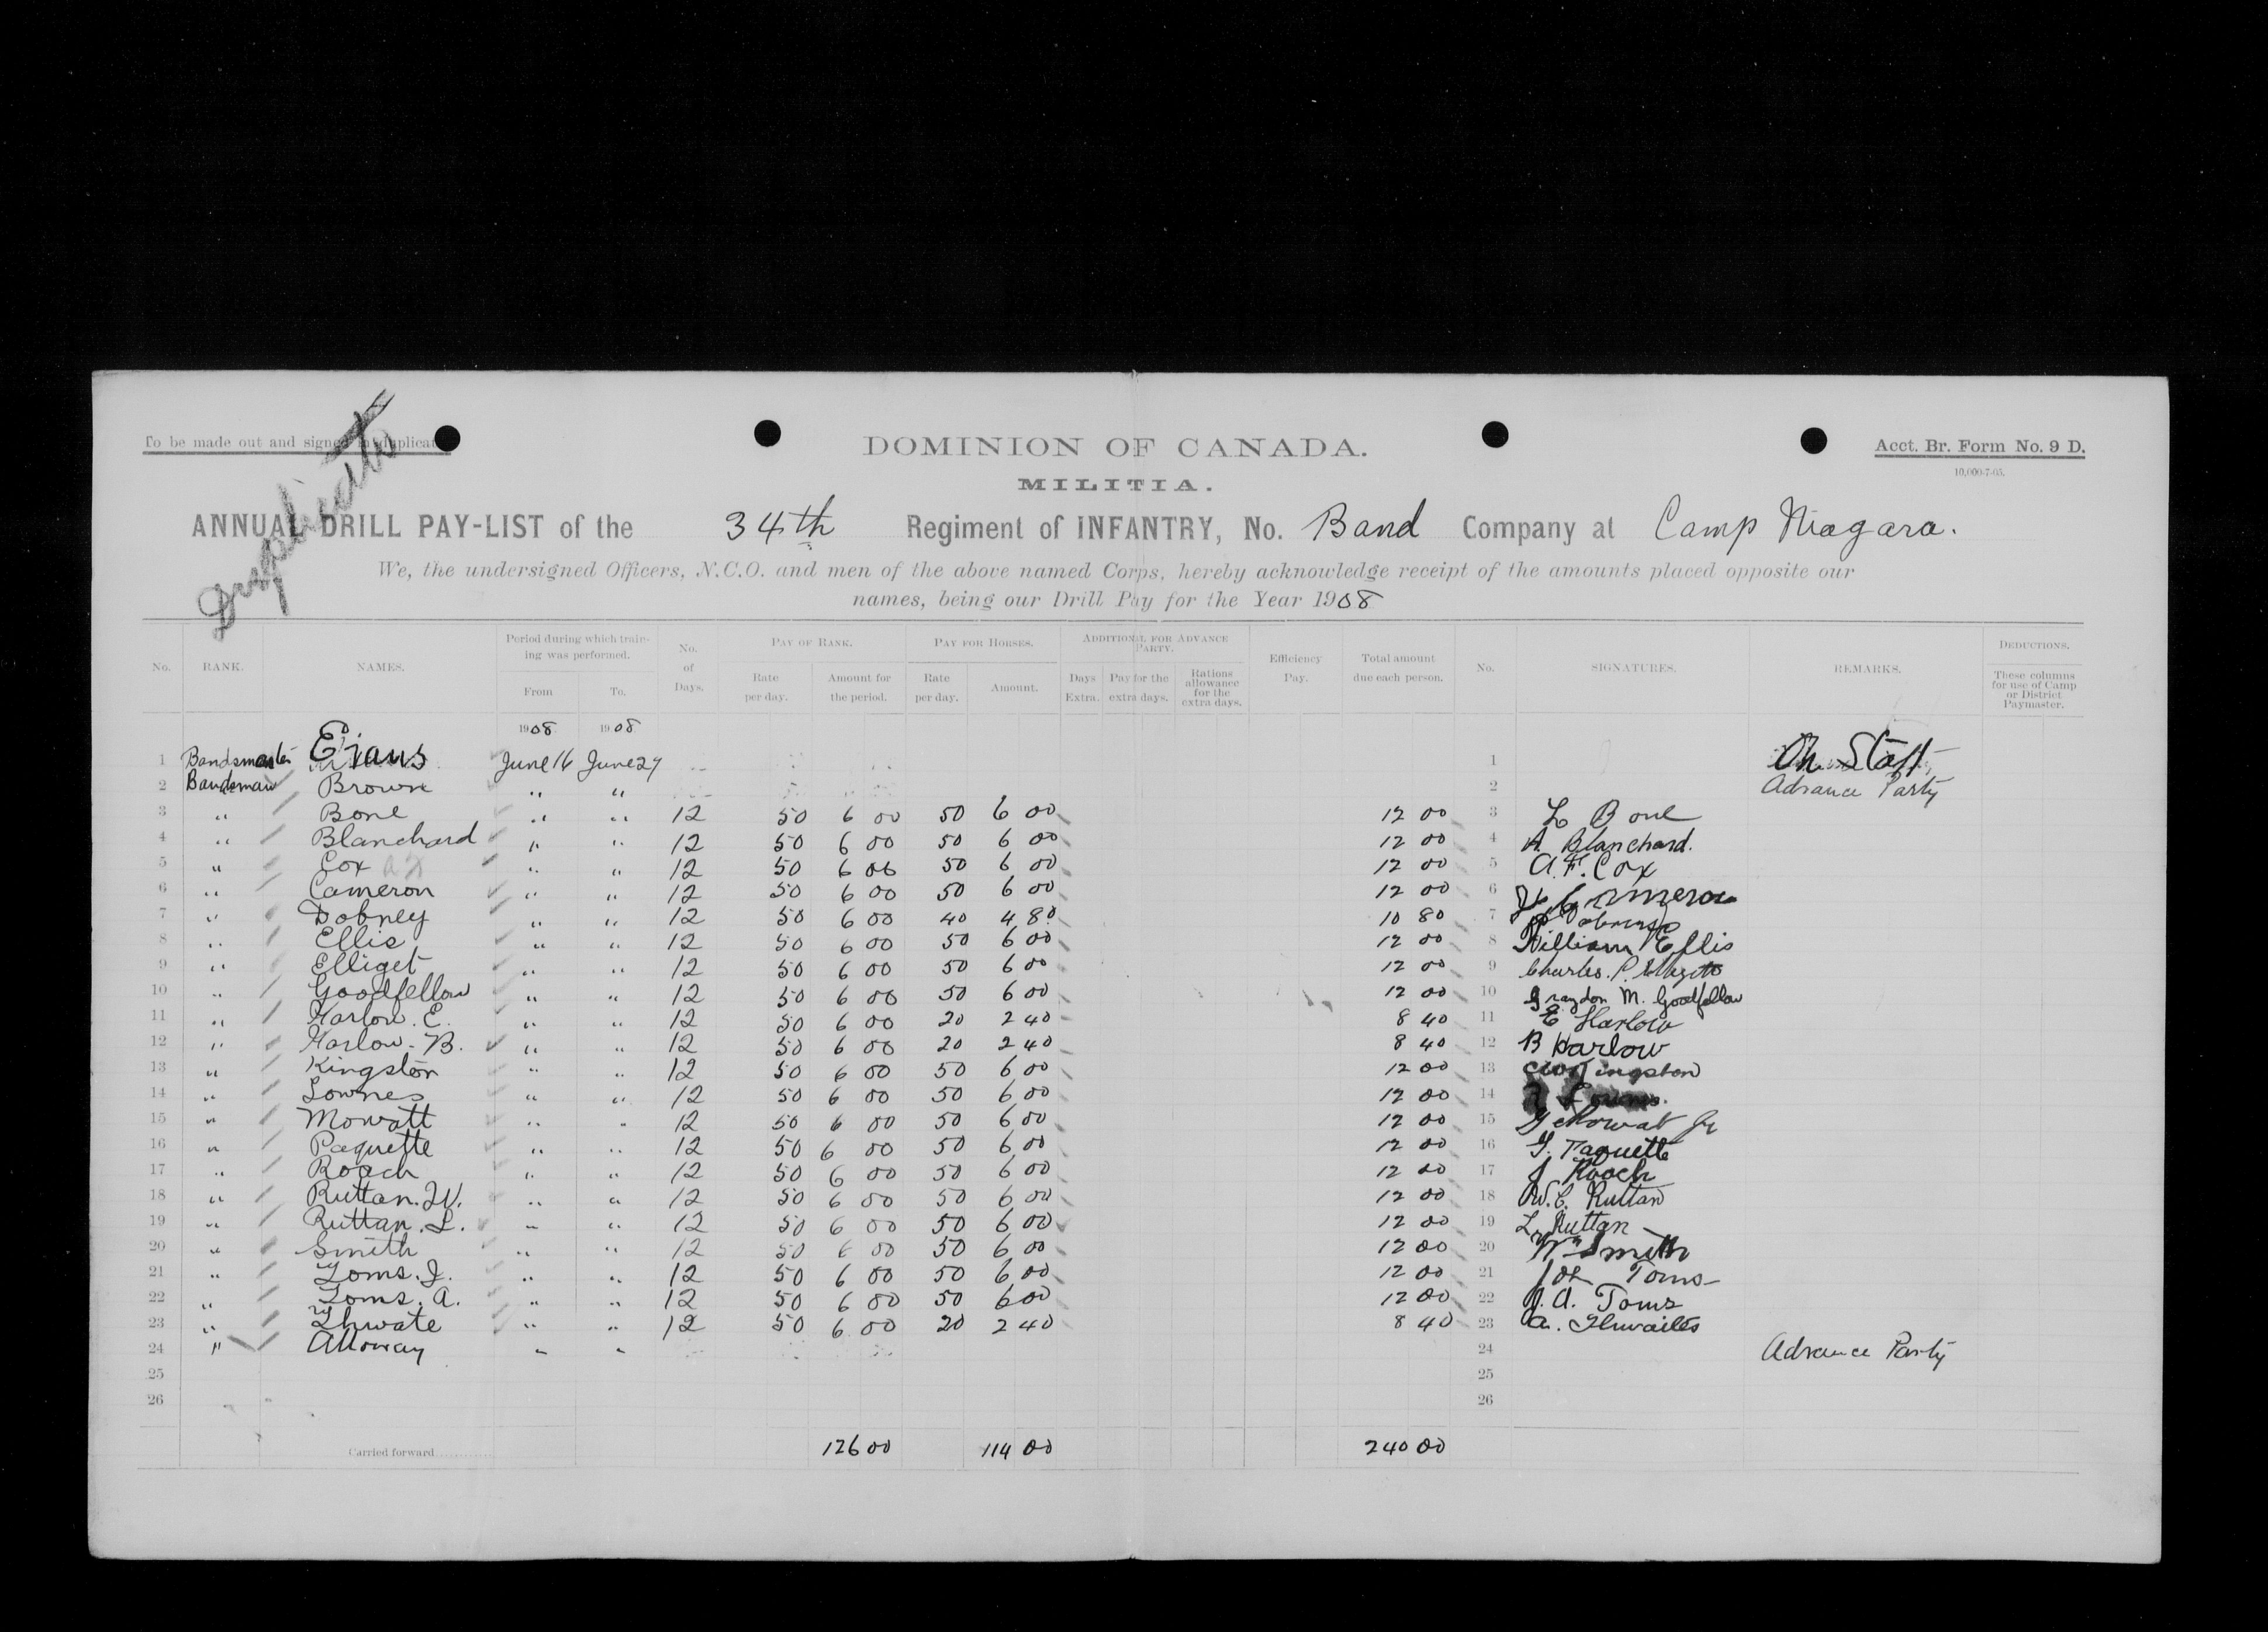 To be made out and signed in duplicate
Duplicate
DOMINION OF CANADA.
Acct. Br. Form No. 9 D.
10,000-7-05.
MILITIA.
ANNUAL DRILL PAY-LIST of the 34th Regiment of INFANTRY, No. Band Company at Camp Niagara.
We, the undersigned Officers, N.C.O. and men of the above named Corps, hereby acknowledge receipt of the amounts placed opposite our
names, being our Drill Pay for the Year 1908
No. RANK. NAMES. Period during which training was performed. From To. No. of Days. PAY OF RANK. Rate per day. Amount for the period. PAY FOR HORSES. Rate per day. Amount. ADDITIONAL FOR ADVANCE PARTY. Days Extra. Pay for the extra days. Rations allowance for the extra days. Efficiency Pay. Total amount due each person. No. SIGNATURES. REMARKS. DEDUCTIONS. These columns for use of Camp or District Paymaster.
1908 1908
1 Bandsmaster Evans June 16 June 27 1 On Staff
2 Bandsman Brown " " 2 Advance Party
3 " Bone " " 12 50 6 00 50 6 00 12 00 3 L Bone
4 " Blanchard " " 12 50 6 00 50 6 00 12 00 4 A. Blanchard.
5 " Cox " " 12 50 6 00 50 6 00 12 00 5 A. F. Cox
6 " Cameron " " 12 50 6 00 50 6 00 12 00 6 Cameron
7 " Dobney " " 12 50 6 00 40 4 80 10 80 7
8 " Ellis " " 12 50 6 00 50 6 00 12 00 8 William Ellis
9 " Elliget " " 12 50 6 00 50 6 00 12 00 9 Charles. P.
10 " Goodfellow " " 12 50 6 00 50 6 00 12 00 10 Graydon M. Goodfellow
11 " Harlow. E. " " 12 50 6 00 20 2 40 8 40 11 E Harlow
12 " Harlow. B. " " 12 50 6 00 20 2 40 8 40 12 B Harlow
13 " Kingston " " 12 50 6 00 50 6 00 12 00 13 Kingston
14 " Lownes " " 12 50 6 00 50 6 00 12 00 14
15 " Mowatt " " 12 50 6 00 50 6 00 12 00 15 G Mowat Jr
16 " Paquette " " 12 50 6 00 50 6 00 12 00 16 G. Paquette
17 " Roach " " 12 50 6 00 50 6 00 12 00 17 J Roach
18 " Ruttan. W. " " 12 50 6 00 50 6 00 12 00 18 W. C. Ruttan
19 " Ruttan. L. " " 12 50 6 00 50 6 00 12 00 19 L Ruttan
20 " Smith " " 12 50 6 00 50 6 00 12 00 20 Wm Smith
21 " Toms. J. " " 12 50 6 00 50 6 00 12 00 21 Jos Toms
22 " Toms. A. " " 12 50 6 00 50 6 00 12 00 22 J. A. Toms
23 " Thwate " " 12 50 6 00 20 2 40 8 40 23 A. Thwaites
24 " Alloway " " 24 Advance Party
25 25
26 26
Carried forward 126 00 114 00 240 00